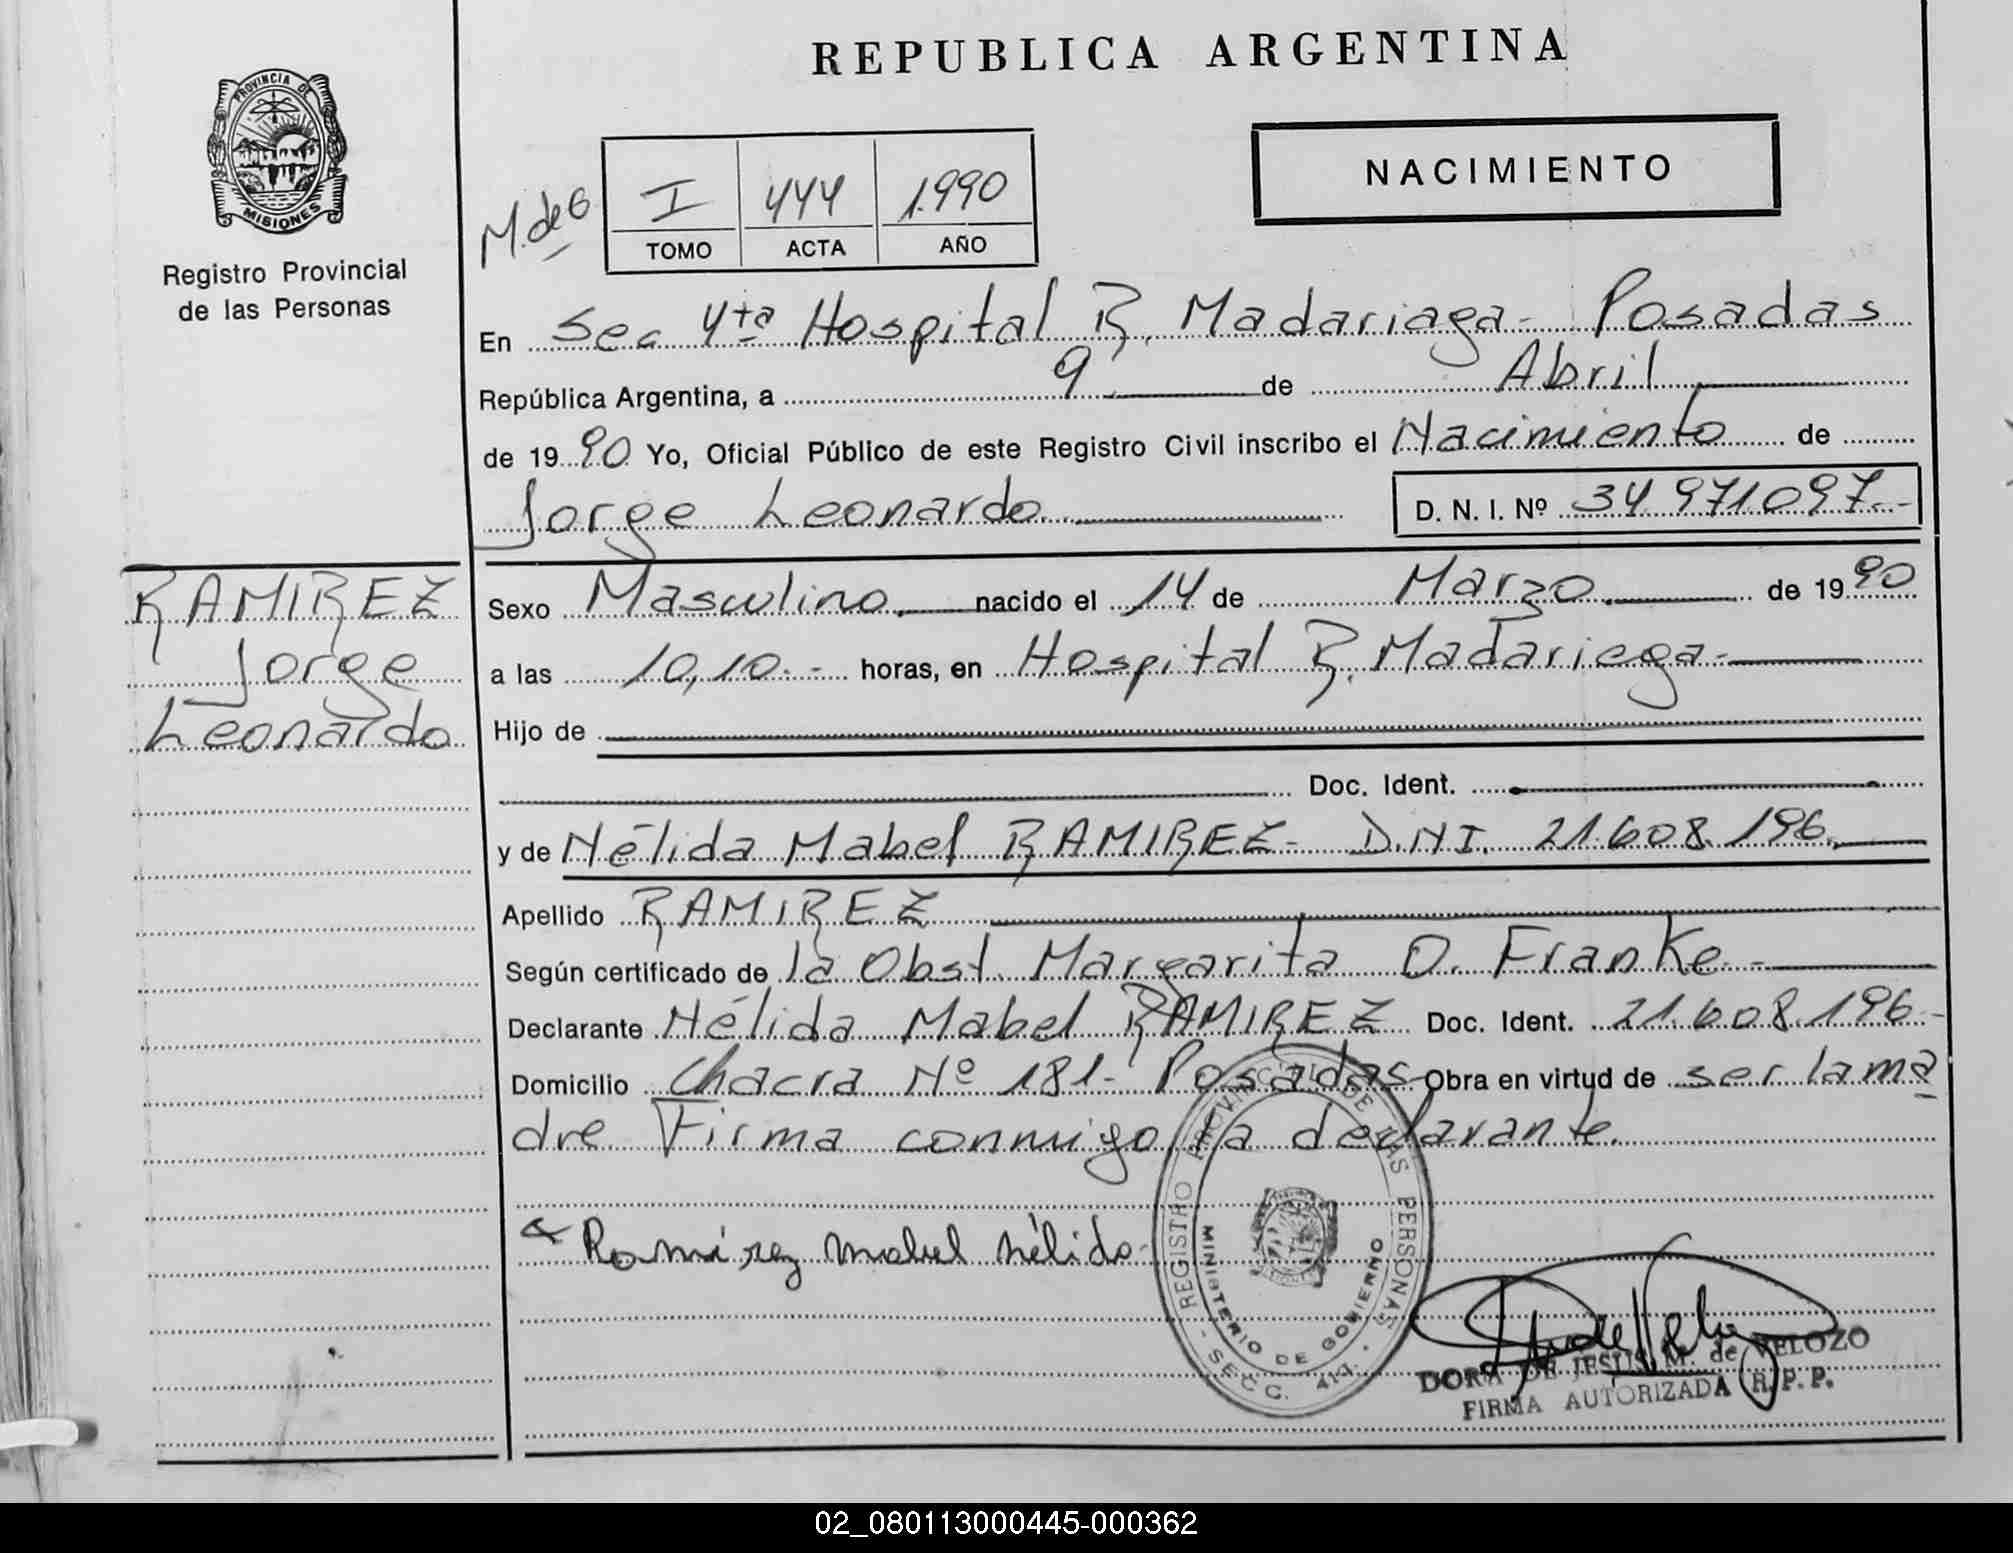 REPUBLICA ARGENTINA
PROVINCIA DE
MISIONES
Registro Provincial
de las Personas
NACIMIENTO
M. de G
I 444 1.990
TOMO ACTA AÑO
En Sec 4ta Hospital R. Madariaga - Posadas
República Argentina, a 9 de Abril
de 1990 Yo, Oficial Público de este Registro Civil inscribo el Nacimiento de
Jorge Leonardo D. N. I. Nº 34 971097.-
RAMIREZ
Jorge
Leonardo
Sexo Masculino. nacido el 14 de Marzo de 1990
a las 10,10.- horas, en Hospital R. Madariega.-
Hijo de
Doc. Ident.
y de Nélida Mabel RAMIREZ - D.N.I. 21.608.196.
Apellido RAMIREZ
Según certificado de la Obst. Margarita O. Franke.-
Declarante Nélida Mabel RAMIREZ Doc. Ident. 21.608.196.-
Domicilio Chacra Nº 181- Posadas- Obra en virtud de ser la ma
dre. Firma conmigo la declarante.
Ramírez mabel nélida
REGISTRO PROVINCIAL DE LAS PERSONAS - SECC. 4ta. -
MINISTERIO DE GOBIERNO
DORA DE JESUS M. de VELOZO
FIRMA AUTORIZADA R. P. P.
02_080113000445-000362